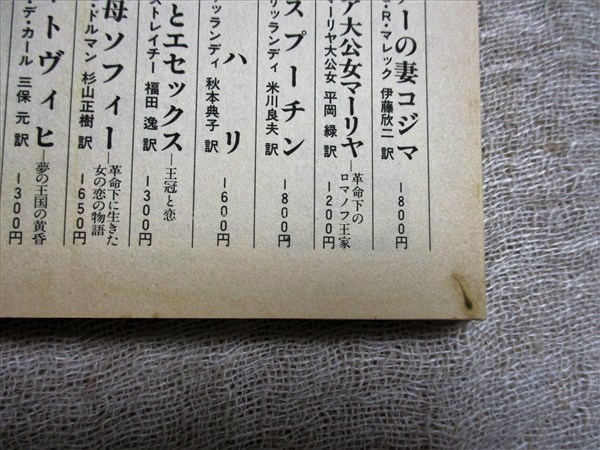 ナーの妻コジマ
・R・マレック 伊藤欣二 訳
一八〇〇円
ア大公女マーリヤ
―革命下の
ロマノフ王家
マーリヤ大公女 平岡 緑 訳
一二〇〇円
スプーチン
リッランディ 米川良夫 訳
一八〇〇円
ハリ
ッランディ 秋本典子 訳
一六〇〇円
とエセックス
―王冠と恋
ストレイチー 福田 逸 訳
一三〇〇円
母ソフィー
―革命下に生きた
女の恋の物語
・ドルマン 杉山正樹 訳
一六五〇円
トヴィヒ
―夢の王国の黄昏
・デ・カール 三保 元 訳
一三〇〇円